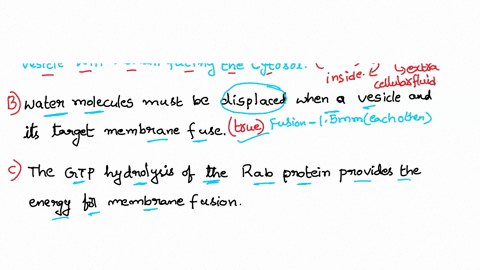 vesicle will facing the cytosol.
inside. extra
cellular fluid
B) Water molecules must be displaced when a vesicle and
its target membrane fuse. (true) Fusion - 1.5mm (each other)
C) The GTP hydrolysis of the Rab protein provides the
energy for membrane fusion.